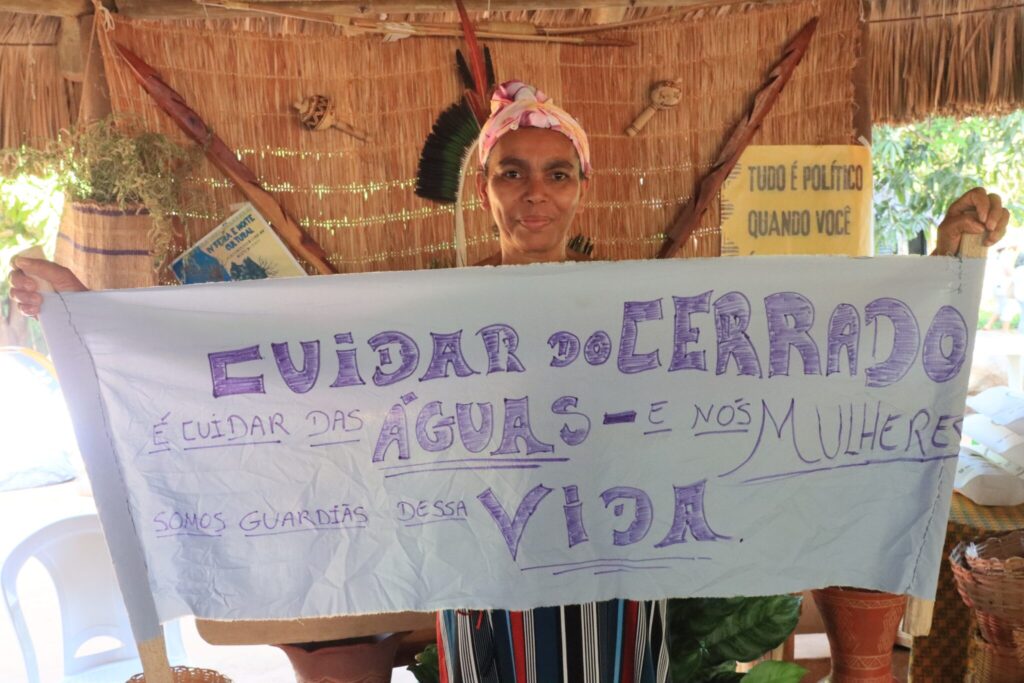 TUDO É POLÍTICO
QUANDO VOCÊ
CUIDAR DO CERRADO
É CUIDAR DAS ÁGUAS - E NÓS MULHERES
SOMOS GUARDIÃS DESSA VIDA.